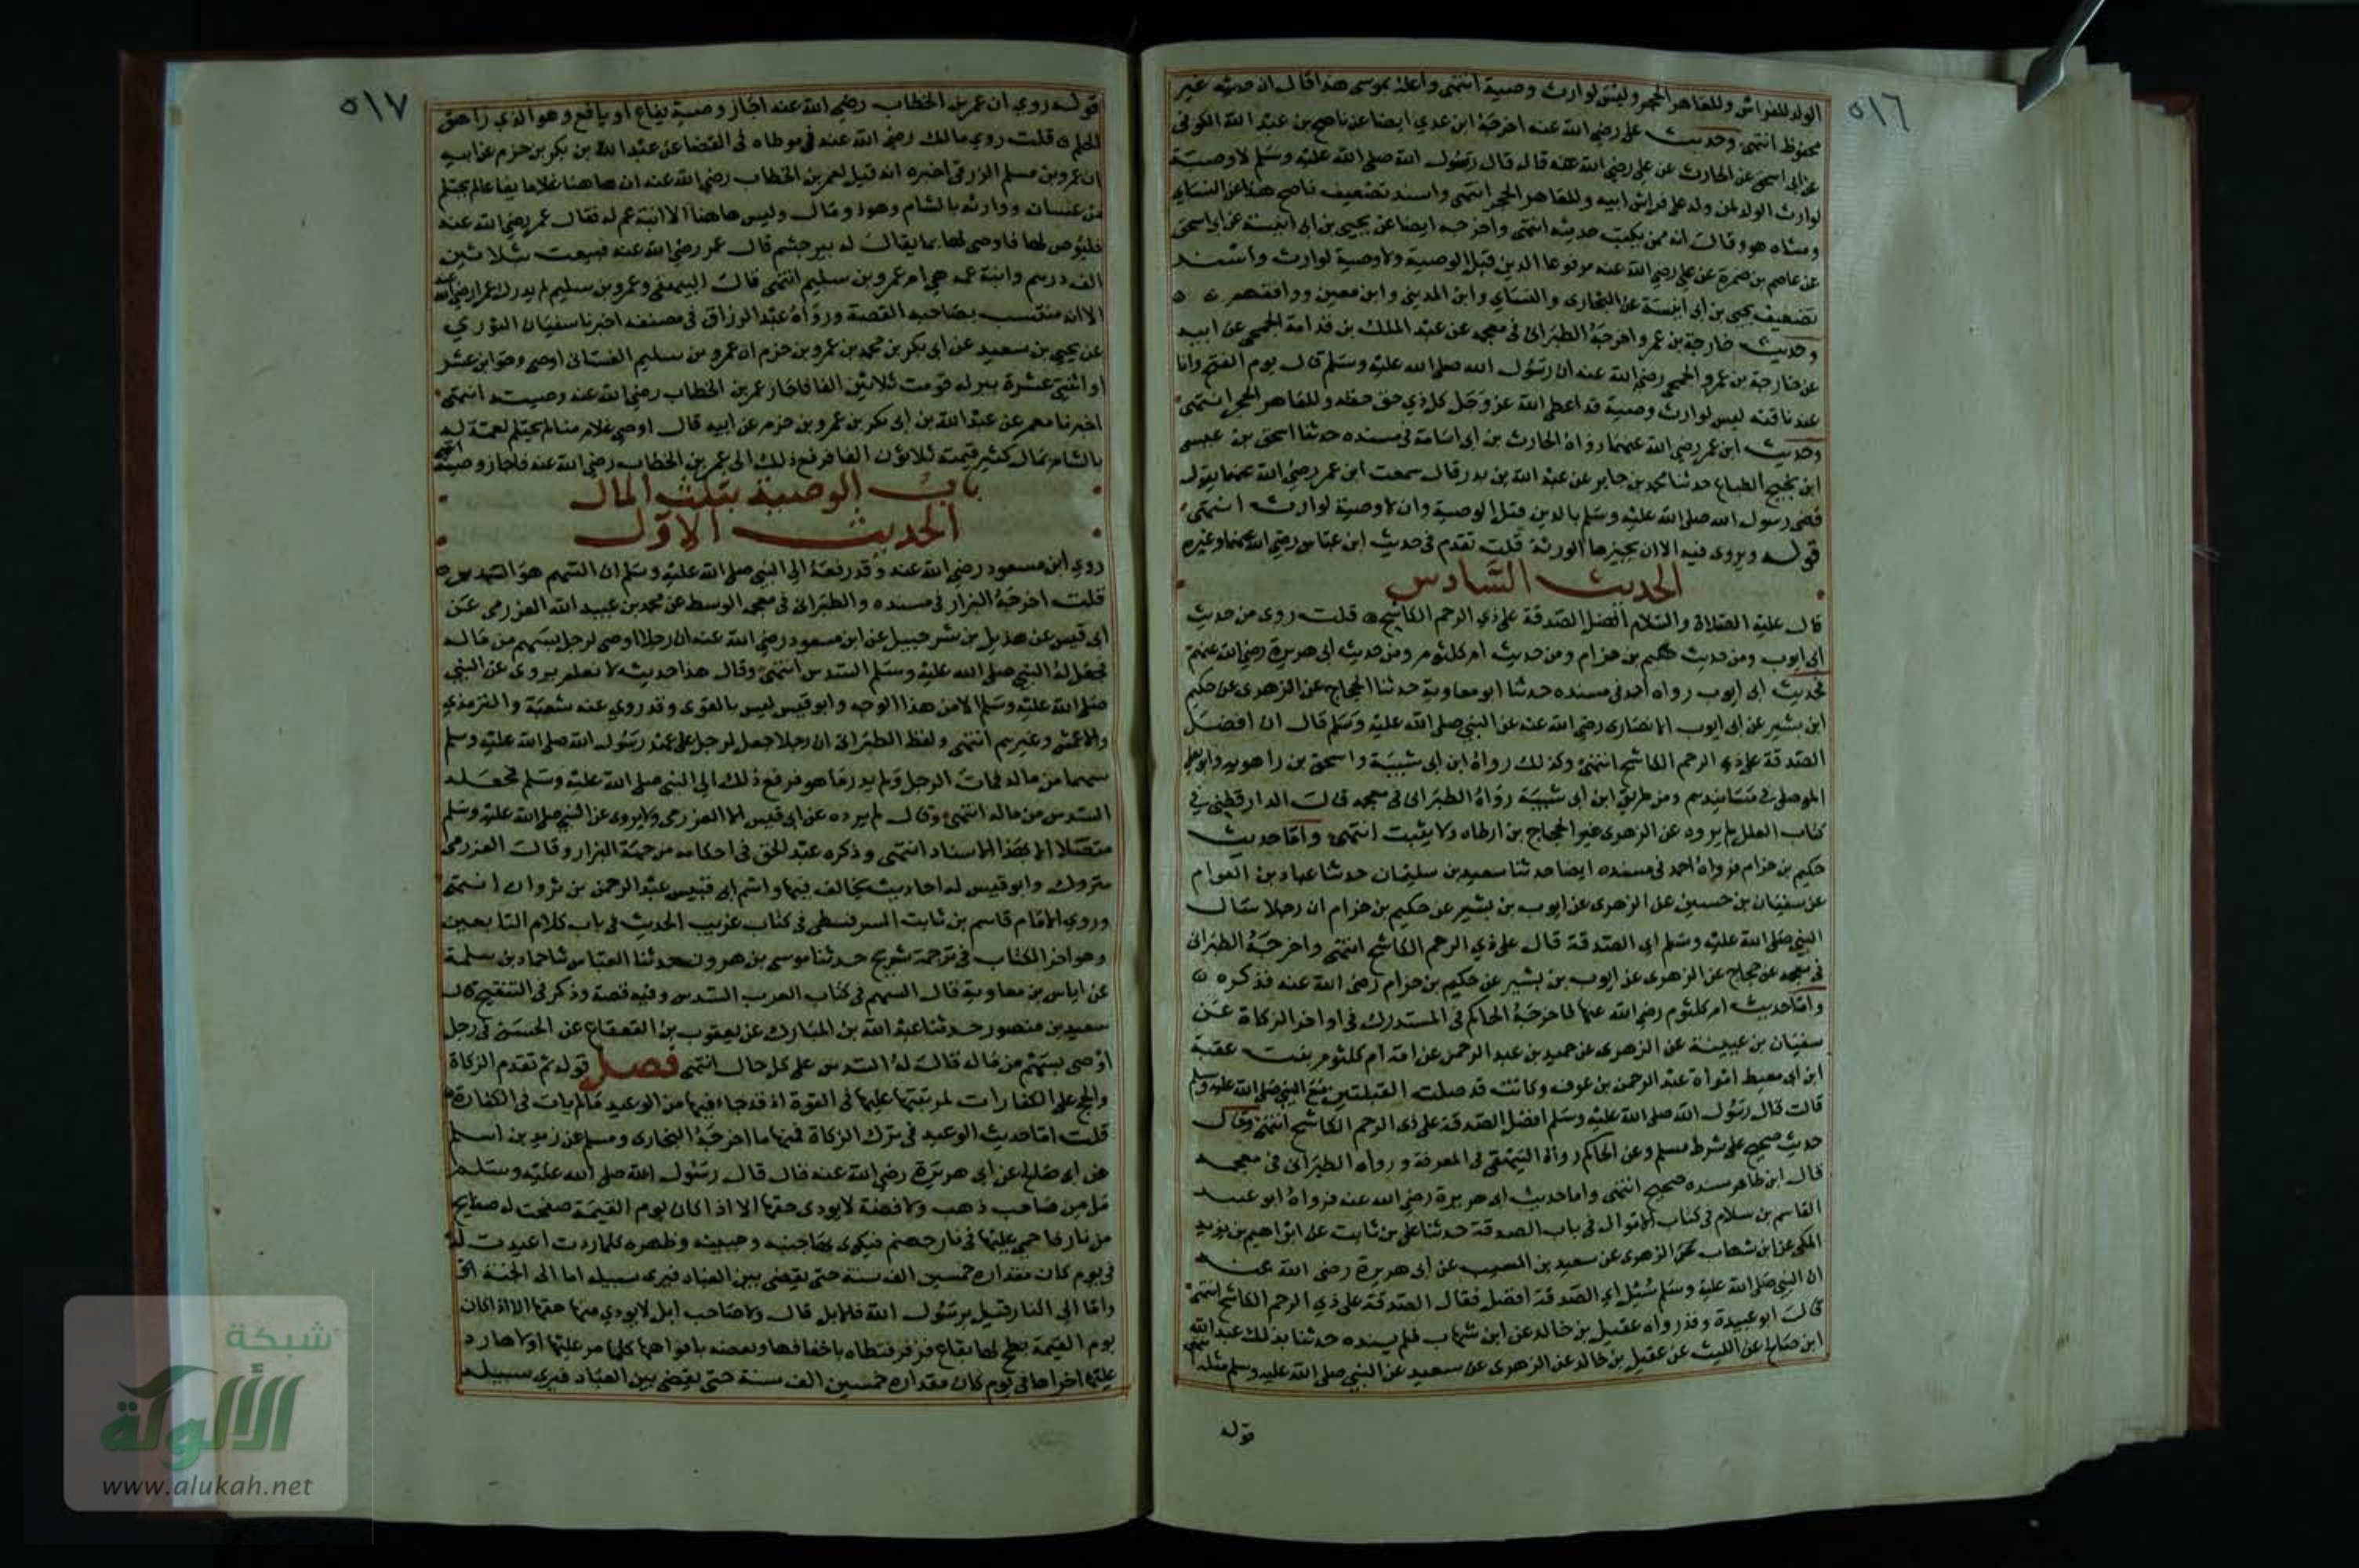 ٥١٦
الولد للفراش وللعاهر الحجر وليس لوارث وصية انتهى واعله بموسى هذا قال ان حديثه غير
محفوظ انتهى وحديث على رضي الله عنه اخرجه ابن عدي ايضا عن ناصح بن عبد الله الكوفى
عن ابى اسحق عن الحارث عن على رضي الله عنه قال قال رسول الله صلى الله عليه وسلم لا وصية
لوارث الولد لمن ولد على فراش ابيه وللعاهر الحجر انتهى واسند تضعيف ناصح هذا عن النساي
ومشاه هو وقال انه ممن يكتب حديثه انتهى واخرجه ايضا عن يحيى بن ابى انيسة عن ابى اسحق
عن عاصم بن ضمرة عن على رضي الله عنه مرفوعا الدين قبل الوصية ولا وصية لوارث واسند
تضعيف يحيى بن ابى انيسة عن البخارى والنساي وابن المدينى وابن معين ووافقهم
وحديث خارجة بن عمرو اخرجه الطبرانى فى معجمه عن عبد الملك بن قدامة الجمحى عن ابيه
عن خارجة بن عمرو الجمحى رضي الله عنه ان رسول الله صلى الله عليه وسلم قال يوم الفتح وانا
عند ناقته ليس لوارث وصية قد اعطى الله عز وجل كل ذي حق حقه وللعاهر الحجر انتهى
وحديث ابن عمر رضي الله عنهما رواه الحارث بن ابى اسامة فى مسنده حدثنا اسحق بن عيسى
ابن نجيح الطباع حدثنا محمد بن جابر عن عبد الله بن بدر قال سمعت ابن عمر رضي الله عنهما يقول
قضى رسول الله صلى الله عليه وسلم بالدين قبل الوصية وان لا وصية لوارث انتهى
قوله ويروى فيه الا ان يجيزها الورثة قلت تقدم فى حديث ابن عباس رضي الله عنهما وغيره
الحديث السادس
قال عليه الصلاة والسلام افضل الصدقة على ذي الرحم الكاشح قلت روى من حديث
ابى ايوب ومن حديث حكيم بن حزام ومن حديث ام كلثوم ومن حديث ابى هريرة رضي الله عنهم
فحديث ابى ايوب رواه احمد فى مسنده حدثنا ابو معاوية حدثنا الحجاج عن الزهرى عن حكيم
ابن بشير عن ابى ايوب الانصارى رضي الله عنه عن النبي صلى الله عليه وسلم قال ان افضل
الصدقة على ذي الرحم الكاشح انتهى وكذلك رواه ابن ابى شيبة واسحق بن راهويه وابو يعلى
الموصلى فى مسانيدهم ومن طريق ابن ابى شيبة رواه الطبرانى فى معجمه قال الدارقطنى فى
كتاب العلل لم يروه عن الزهرى غير الحجاج بن ارطاه ولا يثبت انتهى واما حديث
حكيم بن حزام فرواه احمد فى مسنده ايضا حدثنا سعيد بن سليمان حدثنا عباد بن العوام
عن سفيان بن حسين عن الزهرى عن ايوب بن بشير عن حكيم بن حزام ان رجلا سال
النبي صلى الله عليه وسلم اي الصدقة قال على ذي الرحم الكاشح انتهى واخرجه الطبرانى
فى معجمه عن حجاج عن الزهرى عن ايوب بن بشير عن حكيم بن حزام رضي الله عنه فذكره
واما حديث ام كلثوم رضي الله عنها فاخرجه الحاكم فى المستدرك فى اواخر الزكاة عن
سفيان بن عيينة عن الزهرى عن حميد بن عبد الرحمن عن امه ام كلثوم بنت عقبة
ابن ابى معيط امراة عبد الرحمن بن عوف وكانت قد صلت القبلتين مع النبي صلى الله عليه وسلم
قالت قال رسول الله صلى الله عليه وسلم افضل الصدقة على ذى الرحم الكاشح انتهى وقال
حديث صحيح على شرط مسلم وعن الحاكم رواه البيهقى فى المعرفة ورواه الطبرانى فى معجمه
قال ابن طاهر سنده صحيح انتهى واما حديث ابى هريرة رضي الله عنه فرواه ابو عبيد
القاسم بن سلام فى كتاب الاموال فى باب الصدقة حدثنا على بن ثابت عن ابراهيم بن يزيد
المكى عن ابن شهاب عن الزهرى عن سعيد بن المسيب عن ابى هريرة رضى الله عنه
ان النبي صلى الله عليه وسلم سُئل اي الصدقة افضل فقال الصدقة على ذي الرحم الكاشح انتهى
قال ابو عبيدة وقد رواه عقيل بن خالد عن ابن شهاب فلم يسنده حدثنا بذلك عبد الله
ابن صالح عن الليث عن عقيل بن خالد عن الزهرى عن سعيد عن النبي صلى الله عليه وسلم مثله
قوله
٥١٧
قوله روي ان عمر بن الخطاب رضي الله عنه اجاز وصية يفاع او يافع وهو الذي راهق
الحلم قلت روي مالك رضي الله عنه فى موطاه فى القضا عن عبد الله بن بكر بن حزم عن ابيه
ان عمرو بن مسلم الزرقى اخبره انه قيل لعمر بن الخطاب رضي الله عنه ان هاهنا غلاما يفاعا لم يحتلم
من غسان ووارثه بالشام وهو ذو مال وليس هاهنا الا ابنة عم له فقال عمر رضي الله عنه
فليوص لها فاوصى لها بما يقال له بير جشم قال عمر رضي الله عنه فبيعت بثلاثين
الف درهم وابنة عمه هي ام عمرو بن سليم انتهى قال البيهقى وعمرو بن سليم لم يدرك عمر رضي الله عنه
الا انه منتسب بصاحبه القصة ورواه عبد الرزاق فى مصنفه اخبرنا سفيان الثوري
عن يحيى بن سعيد عن ابى بكر بن محمد بن عمرو بن حزم ان عمرو بن سليم الغسانى اوصى وهو ابن عشر
او اثنتى عشرة ببير له قومت ثلاثين الفا فاجاز عمر بن الخطاب رضي الله عنه وصيته انتهى
اخبرنا معمر عن عبد الله بن ابى بكر بن عمرو بن حزم عن ابيه قال اوصى غلام منا لم يحتلم لعمة له
بالشام بمال كثير قيمته ثلاثون الفا فرفع ذلك الى عمر بن الخطاب رضي الله عنه فاجاز وصيته انتهى
باب الوصية بثلث المال
الحديث الاول
روي ابن مسعود رضي الله عنه وقد رفعه الى النبي صلى الله عليه وسلم ان السهم هو السدس
قلت اخرجه البزار فى مسنده والطبرانى فى معجمه الوسط عن محمد بن عبيد الله العزرمى عن
ابى قيس عن هذيل بن شرحبيل عن ابن مسعود رضي الله عنه ان رجلا اوصى لرجل بسهم من ماله
فجعل له النبي صلى الله عليه وسلم السدس انتهى وقال هذا حديث لا نعلم يروى عن النبي
صلى الله عليه وسلم الا من هذا الوجه وابو قيس ليس بالقوى وقد روي عنه شعبة والثورى
والاعمش وغيرهم انتهى ولفظ الطبرانى ان رجلا جعل لرجل على عهد رسول الله صلى الله عليه وسلم
سهما من ماله فمات الرجل ولم يدر ما هو فرفع ذلك الى النبي صلى الله عليه وسلم فجعل له
السدس من ماله انتهى وقال لم يروه عن ابى قيس الا العزرمى ولا يروى عن النبي صلى الله عليه وسلم
متصلا الا بهذا الاسناد انتهى وذكره عبد الحق فى احكامه من جهة البزار وقال العزرمى
متروك وابو قيس له احاديث يخالف فيها واسم ابى قيس عبد الرحمن بن ثروان انتهى
وروي الامام قاسم بن ثابت السرقسطى فى كتاب غريب الحديث فى باب كلام التابعين
وهو اخر الكتاب فى ترجمة شريح حدثنا موسى بن هرون حدثنا العباس ثنا حماد بن سلمة
عن اياس بن معاوية قال السهم فى كتاب العرب السدس وفيه قصة وذكر فى التنقيح قال
سعيد بن منصور حدثنا عبد الله بن المبارك عن يعقوب بن القعقاع عن الحسن فى رجل
اوصى بسهم من ماله قال له السدس على كل حال انتهى فصل قوله ثم تقدم الزكاة
والحج على الكفارات لمزيتهما عليها فى القوة اذ قد جاء فيهما من الوعيد ما لم يات فى الكفارة
قلت اما حديث الوعيد فى ترك الزكاة فمنها ما اخرجه البخارى ومسلم عن زيد بن اسلم
عن ابى صالح عن ابى هريرة رضي الله عنه قال قال رسول الله صلى الله عليه وسلم
ما من صاحب ذهب ولا فضة لا يودى حقها الا اذا كان يوم القيمة صفحت له صفايح
من نار فاحمي عليها فى نار جهنم فيكوى بها جنبه وجبينه وظهره كلما ردت اعيدت له
فى يوم كان مقداره خمسين الف سنة حتى يقضى بين العباد فيرى سبيله اما الى الجنة
واما الى النار قيل يرسول الله فالابل قال ولا صاحب ابل لا يودي منها حقها الا اذا كان
يوم القيمة بطح لها بقاع قرقر فتطاه باخفافها وتعضه بافواهها كلما مر عليه اولاها رد
عليه اخراها فى يوم كان مقداره خمسين الف سنة حتى يقضى بين العباد فيرى سبيله
شبكة
الألوكة
www.alukah.net